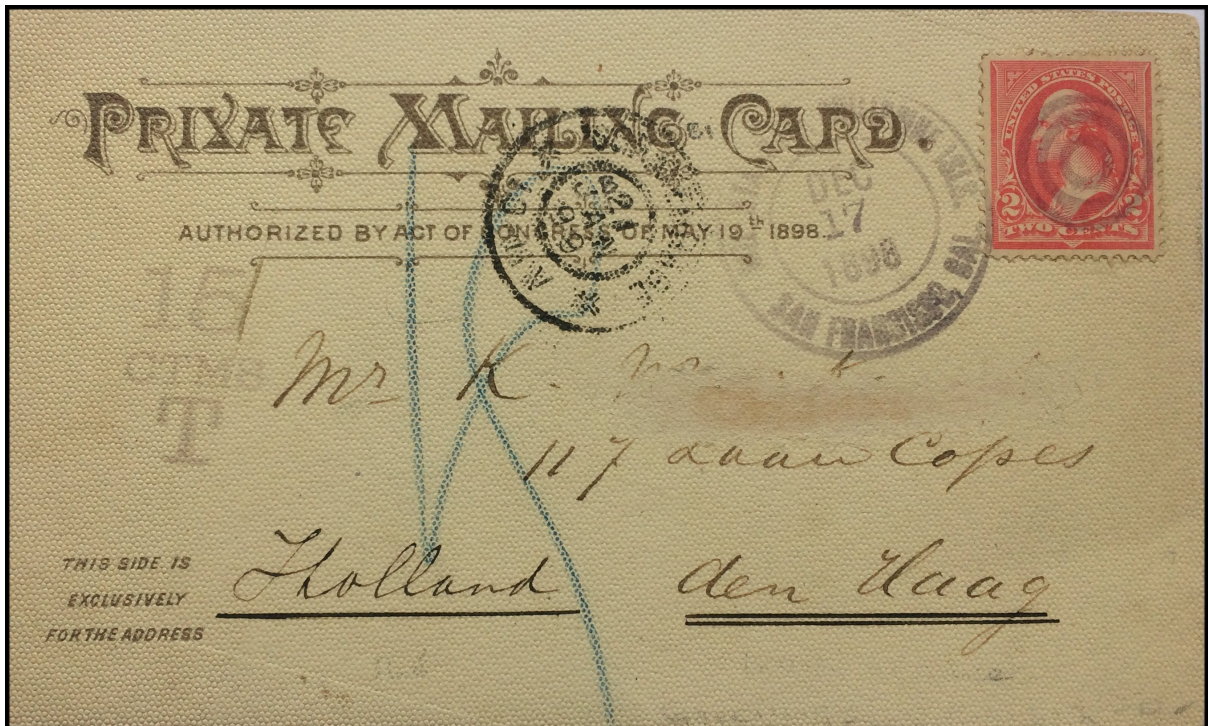 PRIVATE MAILING CARD.
AUTHORIZED BY ACT OF CONGRESS OF MAY 19th 1898.
UNITED STATES POSTAGE
2 2
TWO CENTS
DEC
17
1898
SAN FRANCISCO, CAL.
T
Mr K.
117 Laan Copes
Holland den Haag
THIS SIDE IS
EXCLUSIVELY
FOR THE ADDRESS